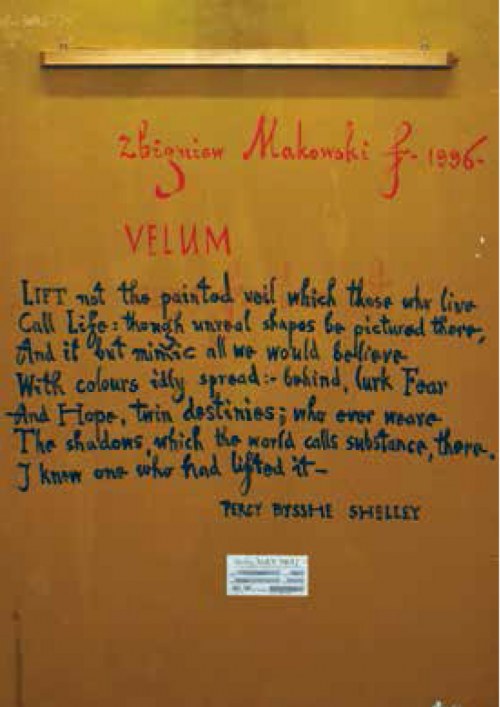 Zbigniew Makowski f - 1996-
VELUM
LIFT not the painted veil which those who live
Call Life: though unreal shapes be pictured there,
And it but mimic all we would believe
With colours idly spread:- behind, lurk Fear
And Hope, twin destinies; who ever weave
The shadows, which the world calls substance, there.
I knew one who had lifted it-
PERCY BYSSHE SHELLEY